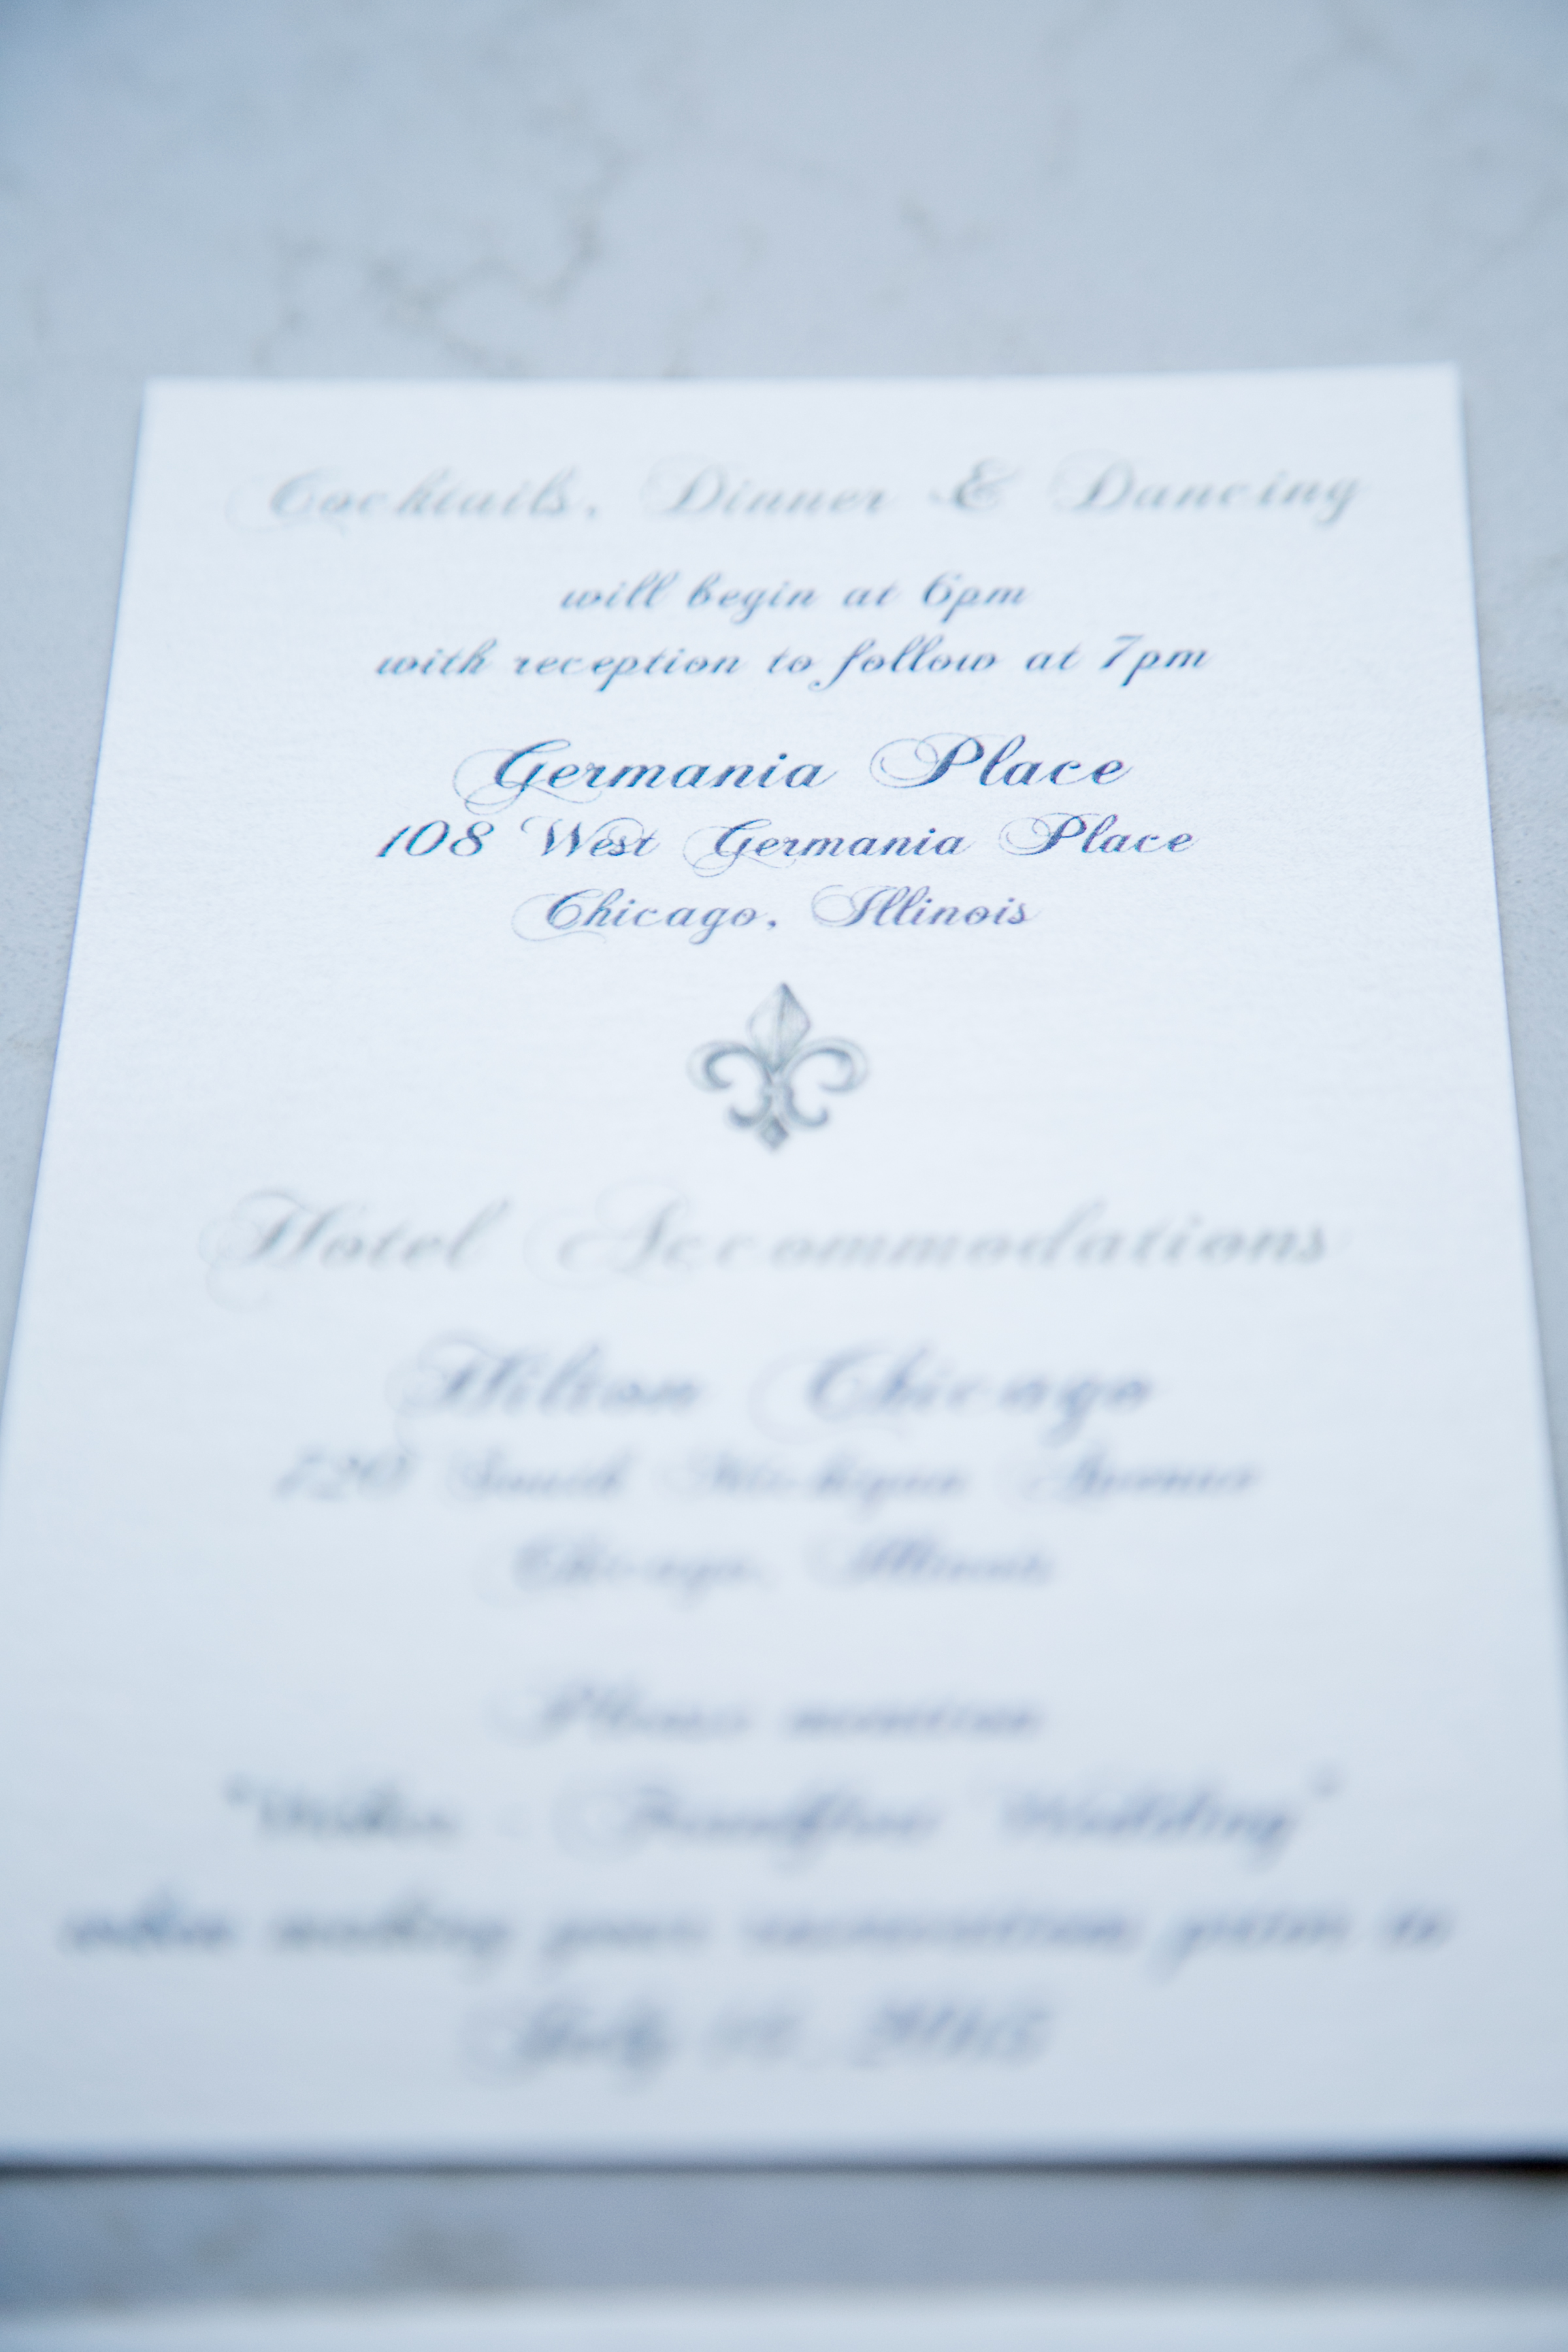 Cocktails, Dinner & Dancing
will begin at 6pm
with reception to follow at 7pm
Germania Place
108 West Germania Place
Chicago, Illinois
Hotel Accommodations
Hilton Chicago
720 South Michigan Avenue
Chicago, Illinois
Please mention
Wedding"
when making your reservation prior to
July